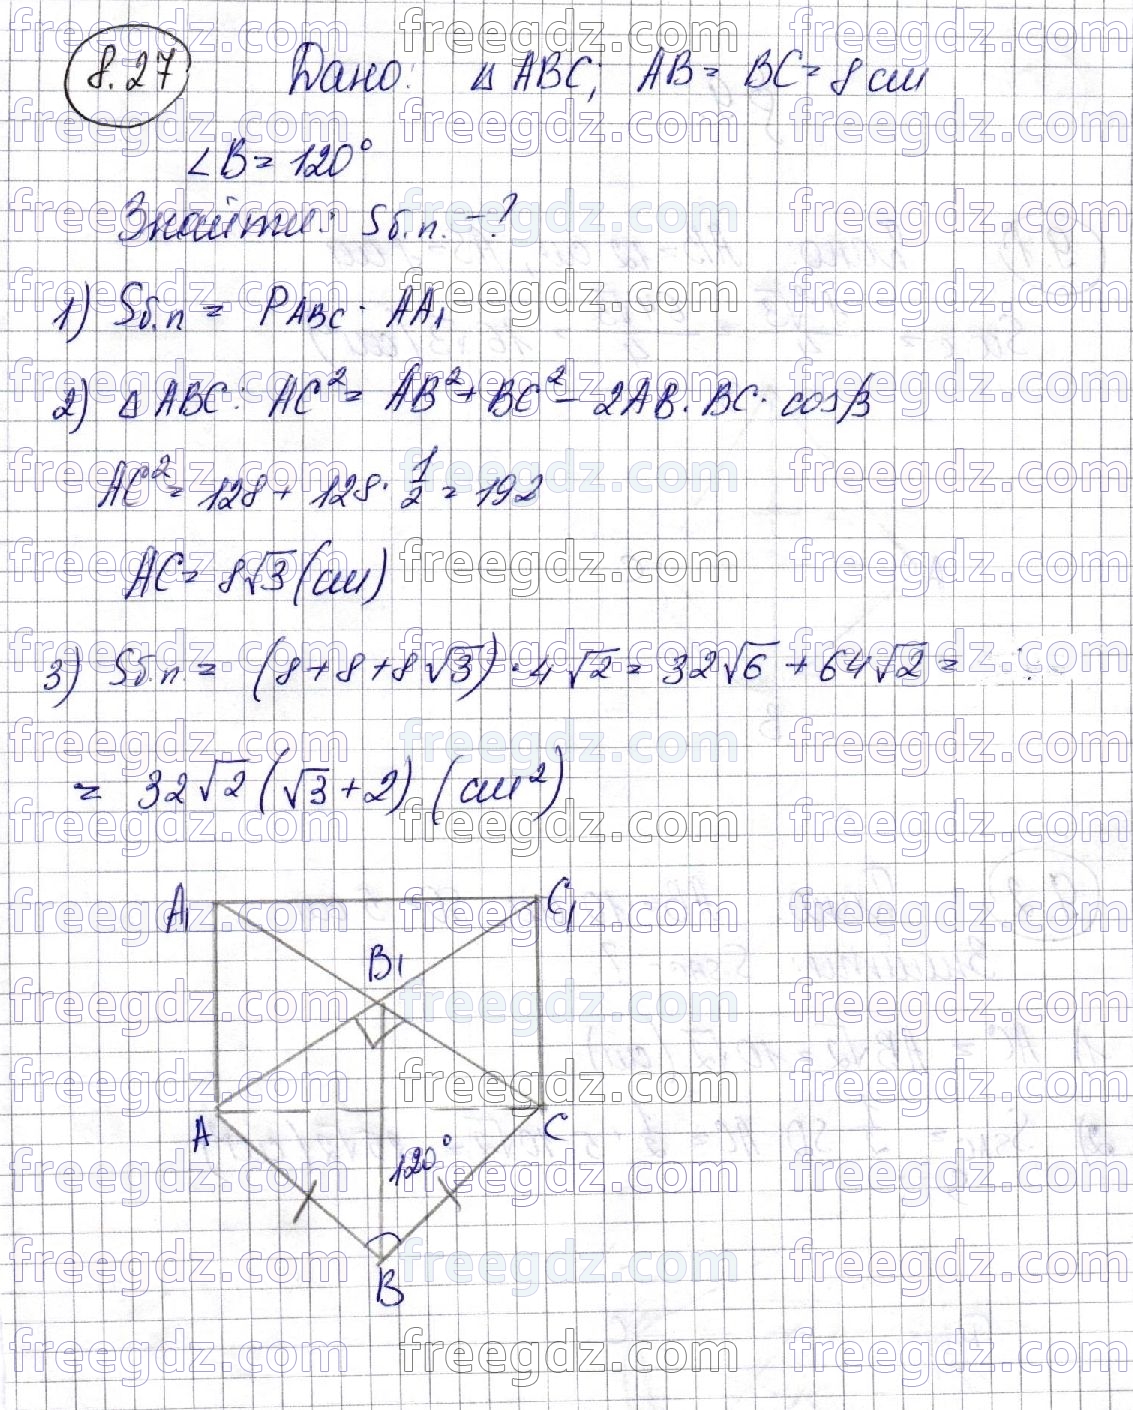 8.27 Дано: △ABC, AB = BC = 8 см
∠B = 120°
Знайти: Sб.п. – ?
1) Sб.п = PABC · AA₁
2) △ABC: AC² = AB² + BC² – 2AB · BC · cosβ
AC² = 128 + 128 · 1/2 = 192
AC = 8√3 (см)
3) Sб.п. = (8+8+8√3) · 4√2 = 32√6 + 64√2 =
= 32√2 (√3+2) (см²)
A₁ C₁
B₁
A C
120°
B
freegdz.com